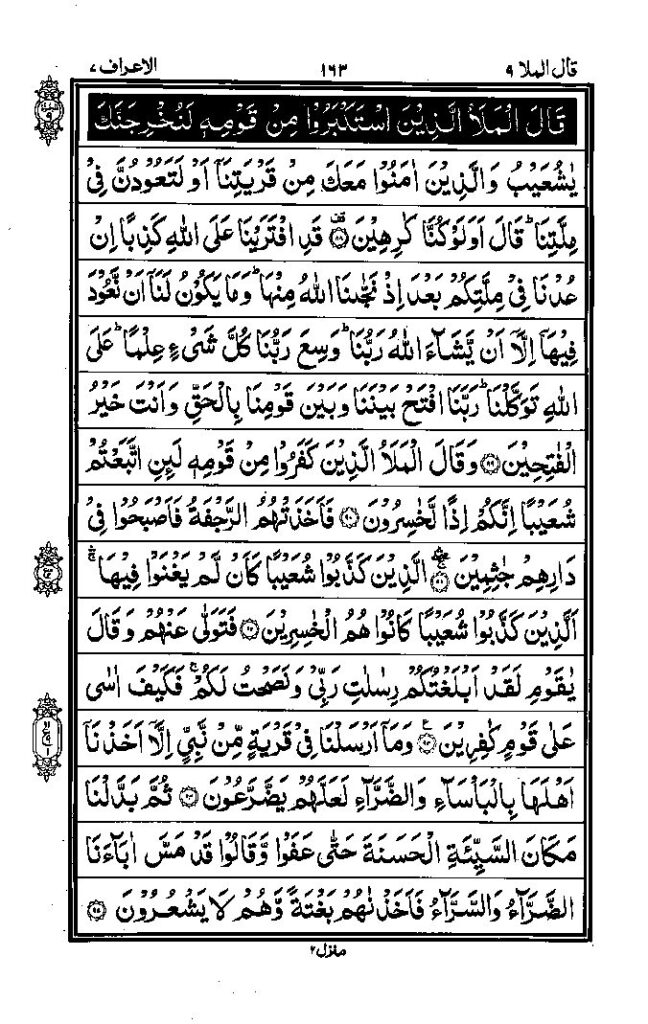 قال الملا ٩ ١٦٣ الاعراف ٧
قَالَ الْمَلَاُ الَّذِيْنَ اسْتَكْبَرُوْا مِنْ قَوْمِهٖ لَنُخْرِجَنَّكَ
يٰشُعَيْبُ وَالَّذِيْنَ اٰمَنُوْا مَعَكَ مِنْ قَرْيَتِنَاۤ اَوْ لَتَعُوْدُنَّ فِيْ
مِلَّتِنَاؕ قَالَ اَوَلَوْ كُنَّا كٰرِهِيْنَ ۟ۙ۸۸ قَدِ افْتَرَيْنَا عَلَى اللّٰهِ كَذِبًا اِنْ
عُدْنَا فِيْ مِلَّتِكُمْ بَعْدَ اِذْ نَجّٰىنَا اللّٰهُ مِنْهَاؕ وَمَا يَكُوْنُ لَنَاۤ اَنْ نَّعُوْدَ
فِيْهَاۤ اِلَّاۤ اَنْ يَّشَآءَ اللّٰهُ رَبُّنَاؕ وَسِعَ رَبُّنَا كُلَّ شَيْءٍ عِلْمًاؕ عَلَى
اللّٰهِ تَوَكَّلْنَاؕ رَبَّنَا افْتَحْ بَيْنَنَا وَبَيْنَ قَوْمِنَا بِالْحَقِّ وَاَنْتَ خَيْرُ
الْفٰتِحِيْنَ ۸۹ وَقَالَ الْمَلَاُ الَّذِيْنَ كَفَرُوْا مِنْ قَوْمِهٖ لَىِٕنِ اتَّبَعْتُمْ
شُعَيْبًا اِنَّكُمْ اِذًا لَّخٰسِرُوْنَ ۹۰ فَاَخَذَتْهُمُ الرَّجْفَةُ فَاَصْبَحُوْا فِيْ
دَارِهِمْ جٰثِمِيْنَ ۹۱ الَّذِيْنَ كَذَّبُوْا شُعَيْبًا كَاَنْ لَّمْ يَغْنَوْا فِيْهَاۚ
اَلَّذِيْنَ كَذَّبُوْا شُعَيْبًا كَانُوْا هُمُ الْخٰسِرِيْنَ ۹۲ فَتَوَلّٰى عَنْهُمْ وَقَالَ
يٰقَوْمِ لَقَدْ اَبْلَغْتُكُمْ رِسٰلٰتِ رَبِّيْ وَنَصَحْتُ لَكُمْۚ فَكَيْفَ اٰسٰى
عَلٰى قَوْمٍ كٰفِرِيْنَ ۹۳ وَمَاۤ اَرْسَلْنَا فِيْ قَرْيَةٍ مِّنْ نَّبِيٍّ اِلَّاۤ اَخَذْنَاۤ
اَهْلَهَا بِالْبَاْسَآءِ وَالضَّرَّآءِ لَعَلَّهُمْ يَضَّرَّعُوْنَ ۹۴ ثُمَّ بَدَّلْنَا
مَكَانَ السَّيِّئَةِ الْحَسَنَةَ حَتّٰى عَفَوْا وَّقَالُوْا قَدْ مَسَّ اٰبَآءَنَا
الضَّرَّآءُ وَالسَّرَّآءُ فَاَخَذْنٰهُمْ بَغْتَةً وَّهُمْ لَا يَشْعُرُوْنَ ۹۵
منزل ٢